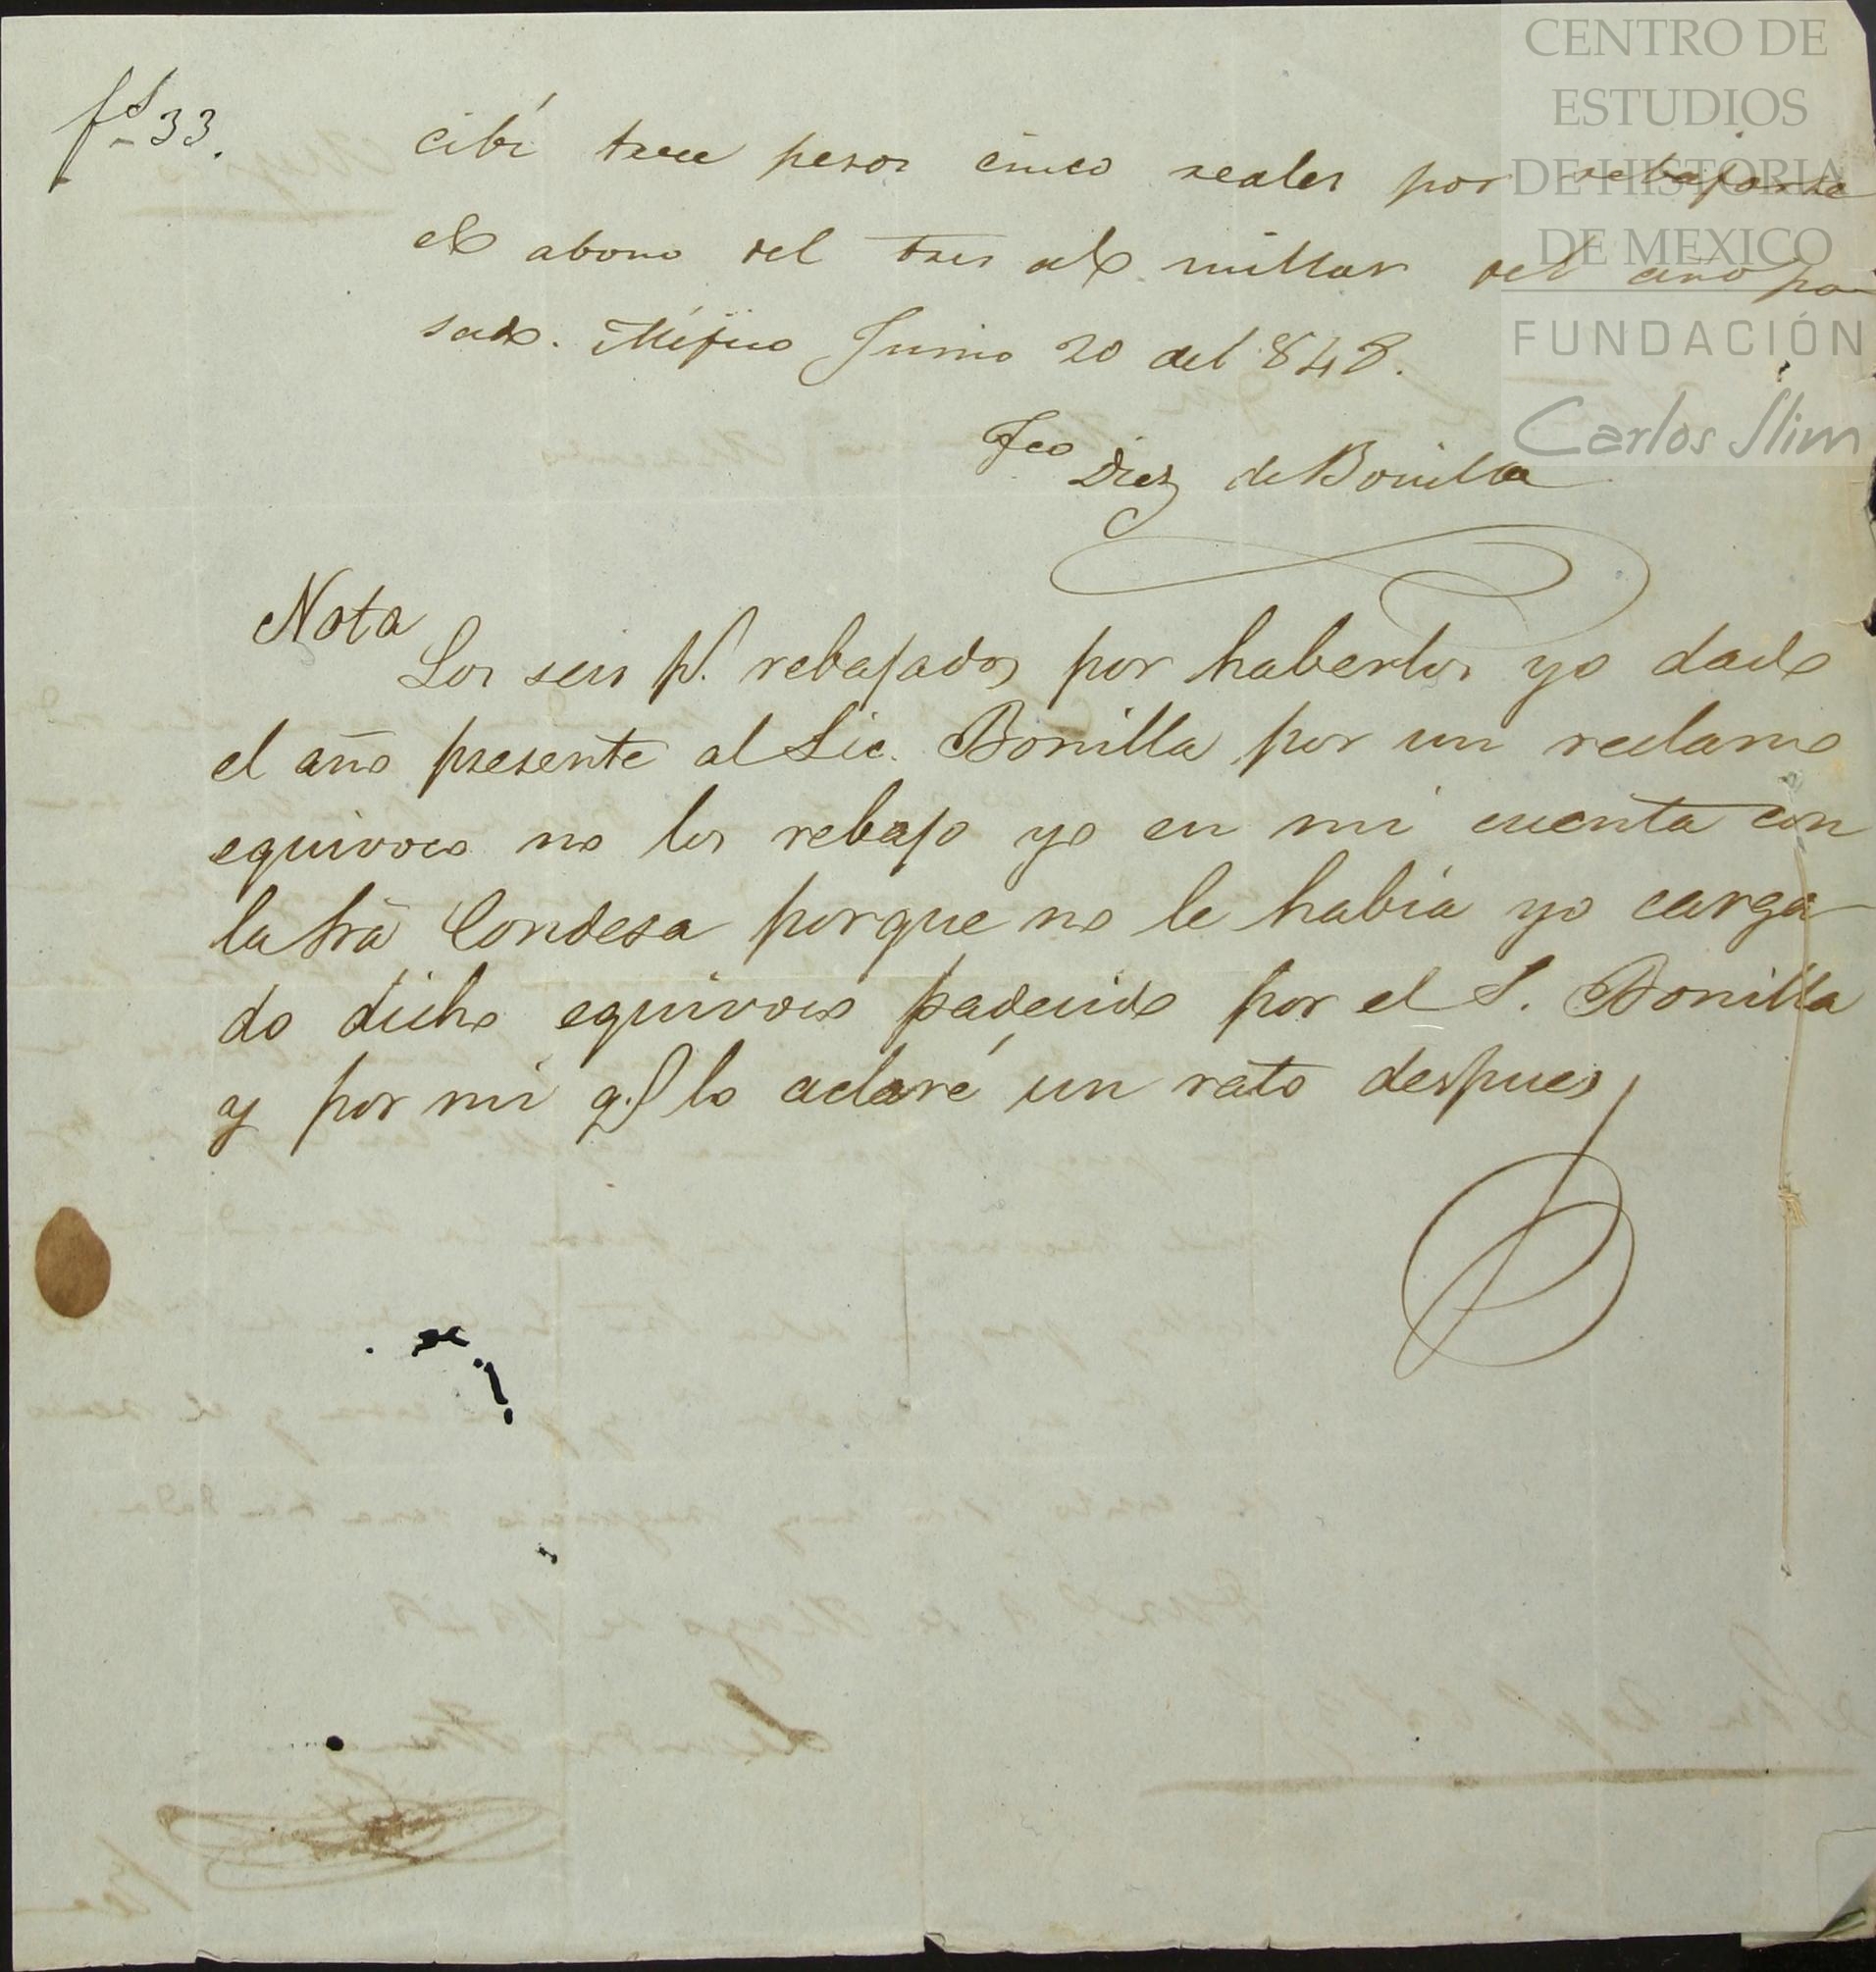 fs 33.
cibí trece pesos cinco reales por rebajarse
el abono del tres al millar del año pa-
sado. Méjico Junio 20 del 848.
Fco Diez de Bonilla
Nota
Los seis ps. rebajados por haberlos yo dado
el año presente al Lic. Bonilla por un reclamo
equivoco no los rebajo yo en mi cuenta con
la Sra Condesa porque no le habia yo carga-
do dicho equivoco padecido por el S. Bonilla
y por mi q.e lo aclaré un rato despues
CENTRO DE
ESTUDIOS
DE HISTORIA
DE MEXICO
FUNDACIÓN
Carlos Slim